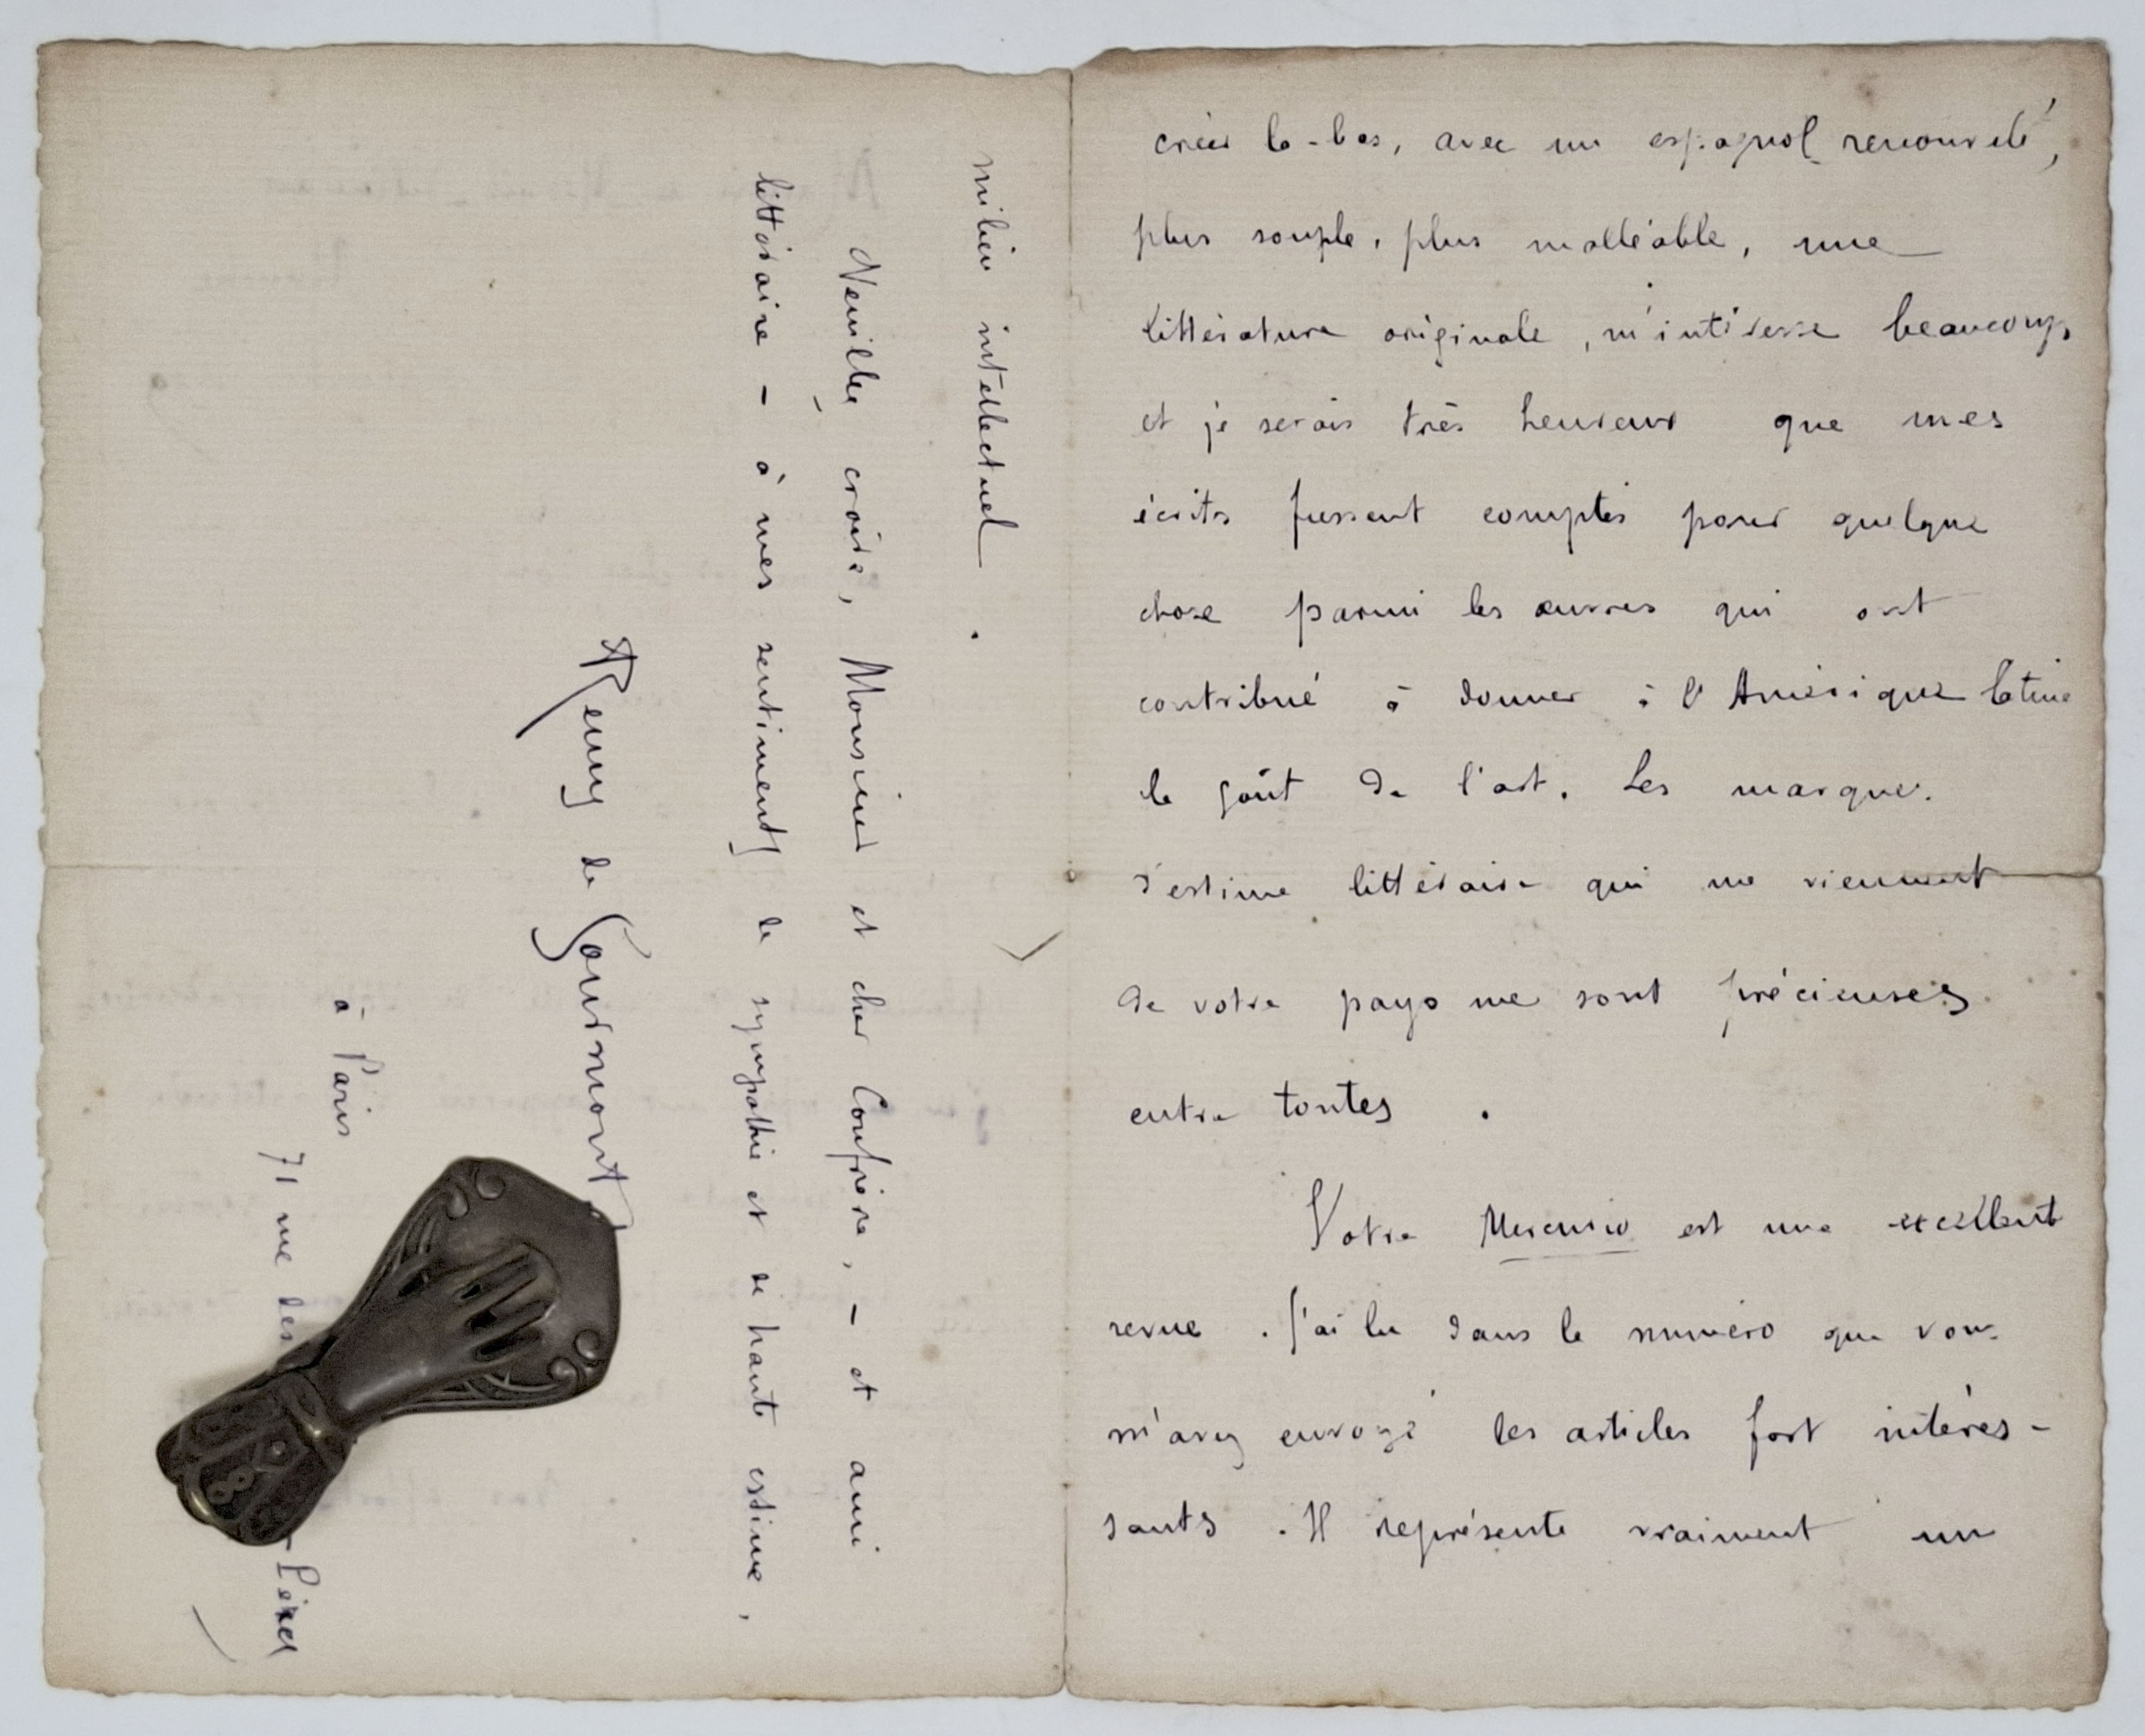 créer là-bas, avec un espagnol renouvelé,
plus souple, plus malléable, une
littérature originale, m'intéresse beaucoup
et je serais très heureux que mes
écrits fussent comptés pour quelque
chose parmi les œuvres qui ont
contribué à donner à l'Amérique latine
le goût de l'art. Les marques
d'estime littéraire qui me viennent
de votre pays me sont précieuses
entre toutes.
Votre Mercurio est une excellent
revue. J'ai lu dans le numéro que vous
m'avez envoyé des articles fort intéres-
sants. Il représente vraiment un
milieu intellectuel.
Veuillez croire, Monsieur et cher Confrère, – et ami
littéraire – à mes sentiments de sympathie et de haute estime,
Remy de Gourmont
à Paris
71 rue des Pères